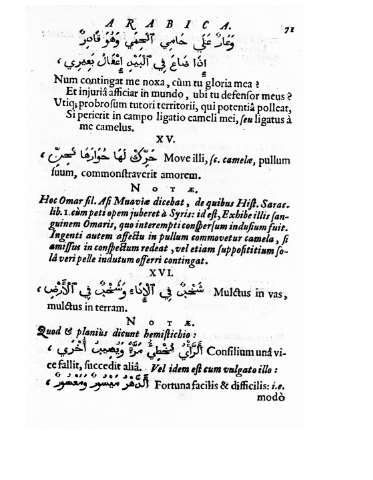 ARABICA. 71
وَعَارٌ عَلَي حَامِي الْحِمَي وَهُوَ قَادِرٌ
إِذَا ضَاعَ فِي الْبَيْدِ عِقَالُ بَعِيرِي ،
Num contingat me noxa, cùm tu gloria mea ?
Et injuriâ afficiar in mundo, ubi tu defensor meus ?
Utiq; probrosum tutori territorii, qui potentiâ polleat,
Si perierit in campo ligatio cameli mei, seu ligatus à
me camelus.
XV.
حَرِّكْ لَهَا حُوَارَهَا تَحِنّ ، Move illi, sc. camelæ, pullum
suum, commonstraverit amorem.
NOTÆ.
Hoc Omar fil. Asi Muaviæ dicebat, de quibus Hist. Sarac.
lib. 1. cùm peti opem juberet à Syris: id est, Exhibe illis san-
guinem Omaris, quo interempti conspersum indusium fuit.
Ingenti autem affectu in pullum commovetur camela, si
amissus in conspectum redeat, vel etiam supposititium so-
lâ veri pelle indutum offerri contingat.
XVI.
شَخْبٌ فِي الْإِنَاءِ وَشَخْبٌ فِي الْأَرْضِ ، Mulctus in vas,
mulctus in terram.
NOTÆ.
Quod & planius dicunt hemistichio:
أَلرَّأْيُ يُخْطِي مَرَّةً وَيُصِيبُ أُخْرَي ، Consilium unâ vi-
ce fallit, succedit aliâ. Vel idem est cum vulgato illo:
أَلدَّهْرُ مَيْسُورٌ وَمَعْسُورٌ ، Fortuna facilis & difficilis: i.e.
modò